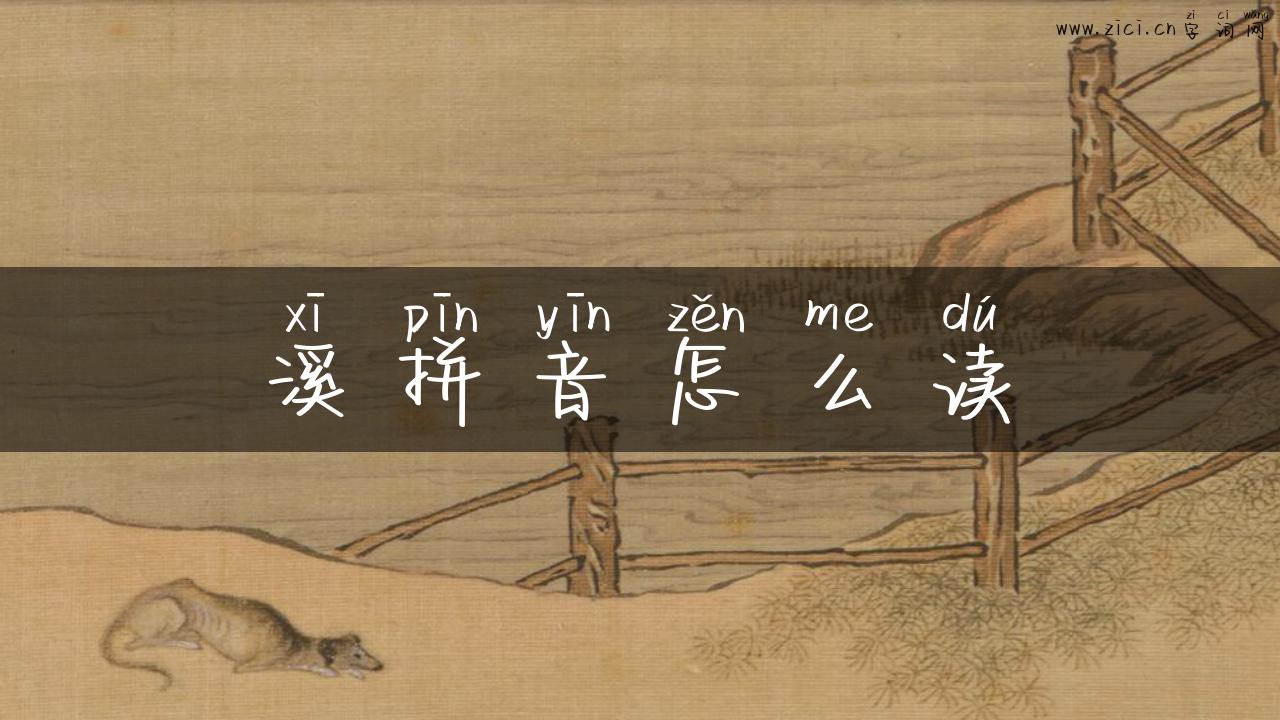 zi ci wang
www.zici.cn 字词网
xī pīn yīn zěn me dú
溪拼音怎么读